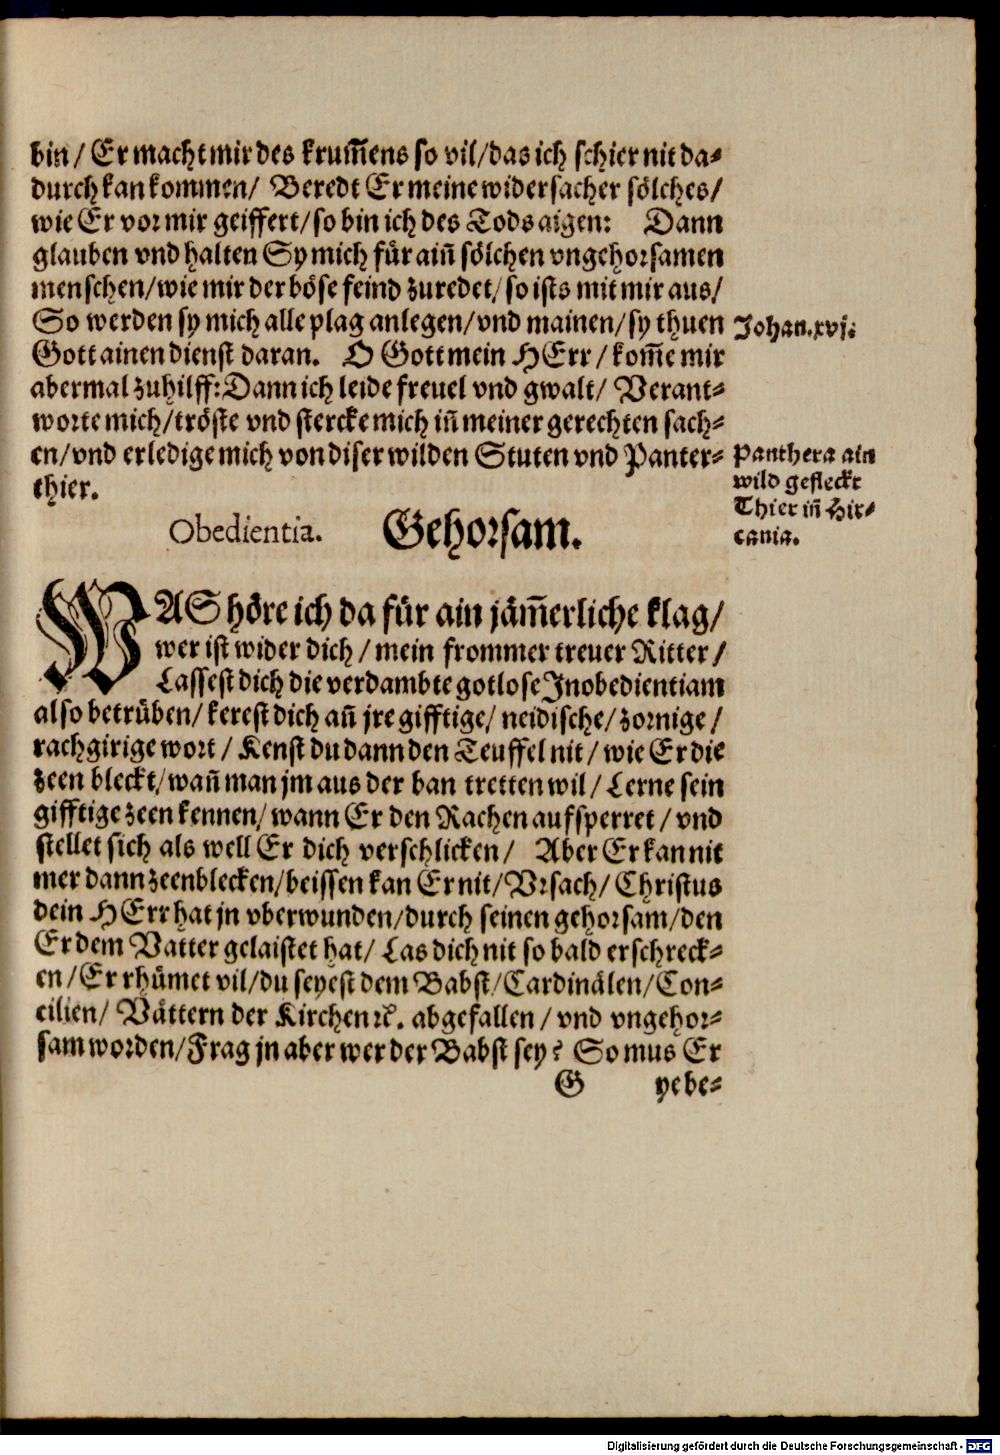 bin / Er macht mir des krum̃ens so vil / das ich schier nit da⸗
durch kan kommen / Beredt Er meine widersacher sölches /
wie Er vor mir geiffert / so bin ich des Tods aigen: Dann
glauben vnd halten Sy mich für ain̄ sölchen vngehorsamen
menschen / wie mir der böse feind zuredet / so ists mit mir aus /
So werden sy mich alle plag anlegen / vnd mainen / sy thuen
Johan.xvj.
Gott ainen dienst daran. O Gott mein HErr / kom̃e mir
abermal zuhilff: Dann ich leide freuel vnd gwalt / Verant⸗
worte mich / tröste vnd stercke mich in̄ meiner gerechten sach⸗
en / vnd erledige mich von diser wilden Stuten vnd Panter⸗
thier.
Panthera ain
wild gefleckt
Thier in̄ Hir⸗
cania.
Obedientia. Gehorsam.
WAS höre ich da für ain jäm̃erliche klag /
wer ist wider dich / mein frommer treuer Ritter /
Lassest dich die verdambte gotlose Inobedientiam
also betrüben / kerest dich an̄ jre gifftige / neidische / zornige /
rachgirige wort / Kenst du dann den Teuffel nit / wie Er die
zeen bleckt / wan̄ man jm aus der ban tretten wil / Lerne sein
gifftige zeen kennen / wann Er den Rachen aufsperret / vnd
stellet sich als well Er dich verschlicken / Aber Er kan nit
mer dann zeenblecken / beissen kan Er nit / Vrsach / Christus
dein HErr hat jn vberwunden / durch seinen gehorsam / den
Er dem Vatter gelaistet hat / Las dich nit so bald erschreck⸗
en / Er rhümet vil / du seyest dem Babst / Cardinälen / Con⸗
cilien / Vättern der Kirchen ꝛc. abgefallen / vnd vngehor⸗
sam worden / Frag jn aber wer der Babst sey? So mus Er
G yebe⸗
Digitalisierung gefördert durch die Deutsche Forschungsgemeinschaft - DFG